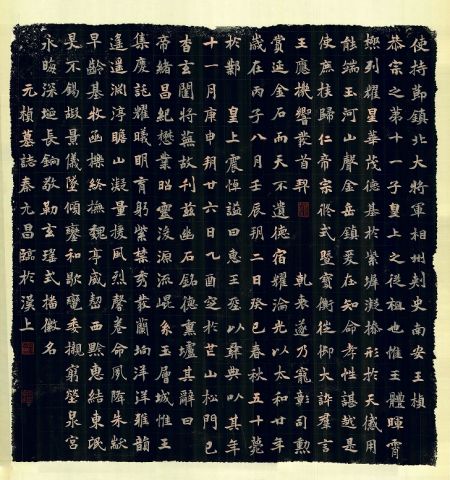 使持節鎮北大將軍相州刺史南安王楨
恭宗之第十一子皇上之從祖也惟王體暉霄
極列耀星華茂德基於紫墀凝操形於天感用
能端玉河山聲金岳鎮爰在知命孝性諶越是
使庶族歸仁帝宗攸式暨寶衡徙御大訊羣言
王應機響發首契 乾衷遂乃寵彰司勳
賞延金石而天不遺德宿耀淪光以太和廿年
歲在丙子八月壬辰朔二日癸巳春秋五十薨
於鄴 皇上震悼謚曰惠王葬以彝典以其年
十一月庚申朔廿六日乙酉窆於芒山松門已
杳玄闥將蕪故刊茲幽石銘德熏壚其辭曰
帝緒昌紀懋業昭靈浚源流崐系玉層城惟王
集慶託耀曦明育躬紫禁秀發蘭坰洋洋雅韻
遙遙淵渟瞻山凝量援風烈馨卷命夙降朱黻
早齡基牧函櫟終撫魏亭威整西黔惠結東氓
旻不錫嘏景儀墜傾鑾和歌慟委櫬窮塋泉宮
永晦深埏長鉤敬勒玄瑤式播徽名
元楨墓誌春元昌臨於漢上